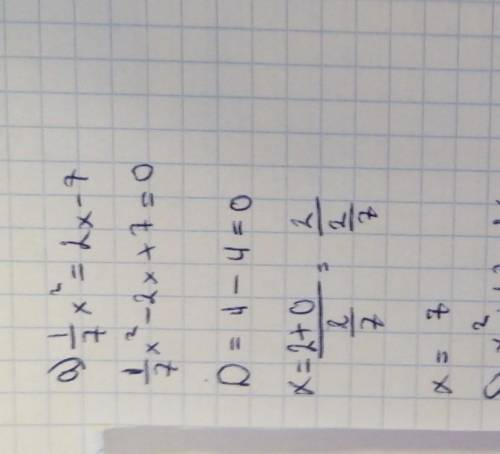 a) 1/7 x² = 2x - 7
1/7 x² - 2x + 7 = 0
D = 4 - 4 = 0
x = (2+0)/(2/7) = 2/(2/7)
x = 7